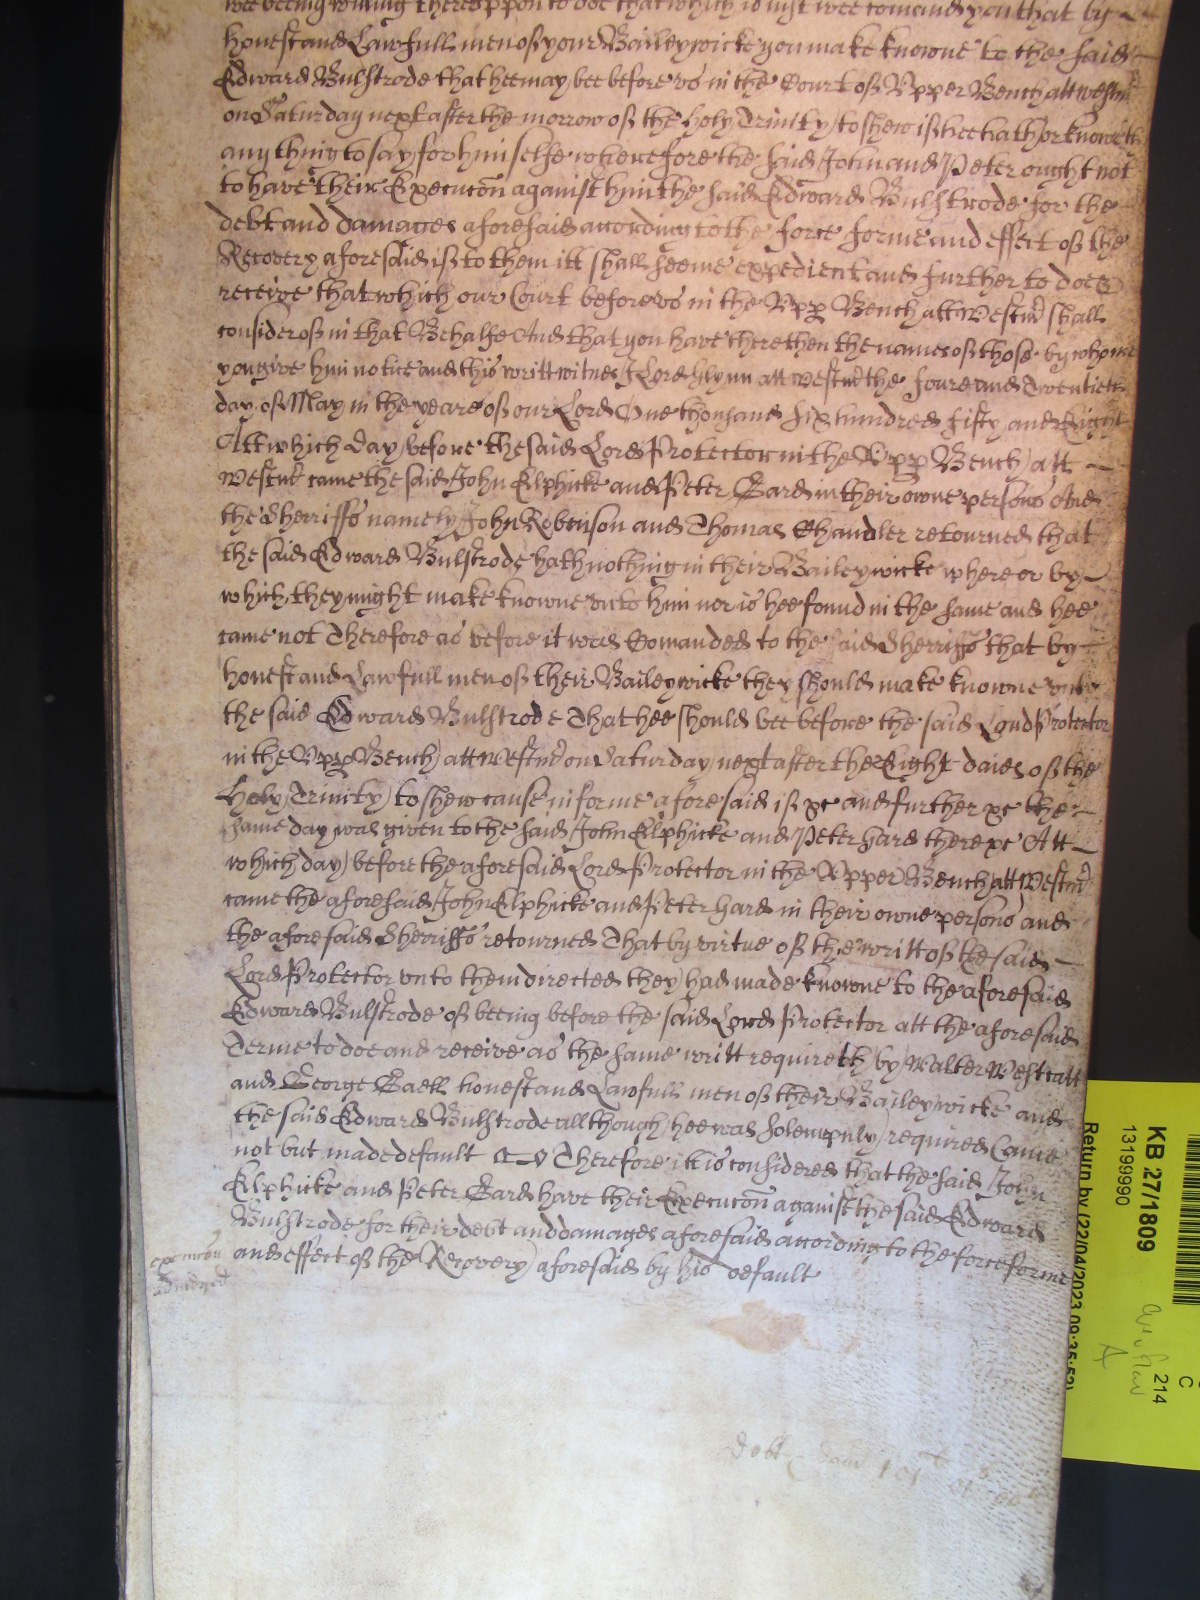 wee beeing willing thereuppon to doe that which is iust wee comand you that by
honest and Lawfull men of your Baileywicke you make knowne to the said
Edward Bulstrode that hee may bee before vs in the Court of Vpper Bench att Westmr
on Saturday next after the morrow of the Holy Trinity to shew if hee hath or knoweth
any thing to say for himselfe wherefore the said John and Peter ought not
to have their Execucon against him the said Edward Bulstrode for the
debt and damages aforesaid according to the force forme and effect of the
Recovery aforesaid if to them itt shall seeme expedient and further to doe &
receive that which our Court before vs in the Vpp Bench att Westmr shall
consider of in that Behalfe And that you have there then the names of those by whome
you give him notice and this writt witnes J Lord Glynn att Westmr the foure and Twentieth
day of May in the yeare of our Lord One thousand six hundred fifty and Eight
Att which day before the said Lord Protector in the Vpp Bench att
Westmr came the said John Elphicke and Peter Gard in their owne persons And
the Sherriffs namely John Robinson and Thomas Chandler retourned that
the said Edward Bulstrode hath nothing in their Baileywicke where or by
which they might make knowne vnto him nor is hee found in the same and hee
came not Therefore as before it was Comanded to the said Sherriffs that by
honest and Lawfull men of their Baileywicke they should make knowne vnto
the said Edward Bulstrode That hee should bee before the said Lord Protector
in the Vpp Bench att Westmr on Saturday next after the Eight daies of the
Holy Trinity to shew cause in forme aforesaid if &c and further &c the
same day was given to the said John Elphicke and Peter Gard there &c Att
which day before the aforesaid Lord Protector in the Vpper Bench att Westmr
came the aforesaid John Elphicke and Peter Gard in their owne persons and
the aforesaid Sherriffs retourned That by virtue of the writt of the said
Lord Protector vnto them directed they had made knowne to the aforesaid
Edward Bulstrode of beeing before the said Lord Protector att the aforesaid
Terme to doe and receive as the same writt requireth by Walter Westcatt
and George Gaell honest and Lawfull men of their Baileywicke and
the said Edward Bulstrode allthough hee was solempnly required Came
not but made default Therefore it is considered that the said John
Elphicke and Peter Gard have their Execucon against the said Edward
Bulstrode for their debt and damages aforesaid according to the force forme
and effect of the Recovery aforesaid by his default
execucon
adiudged
debt & dam 101
KB 27/1809
13199990
Return by (22/04/2023 09:35:52)
C
214
A